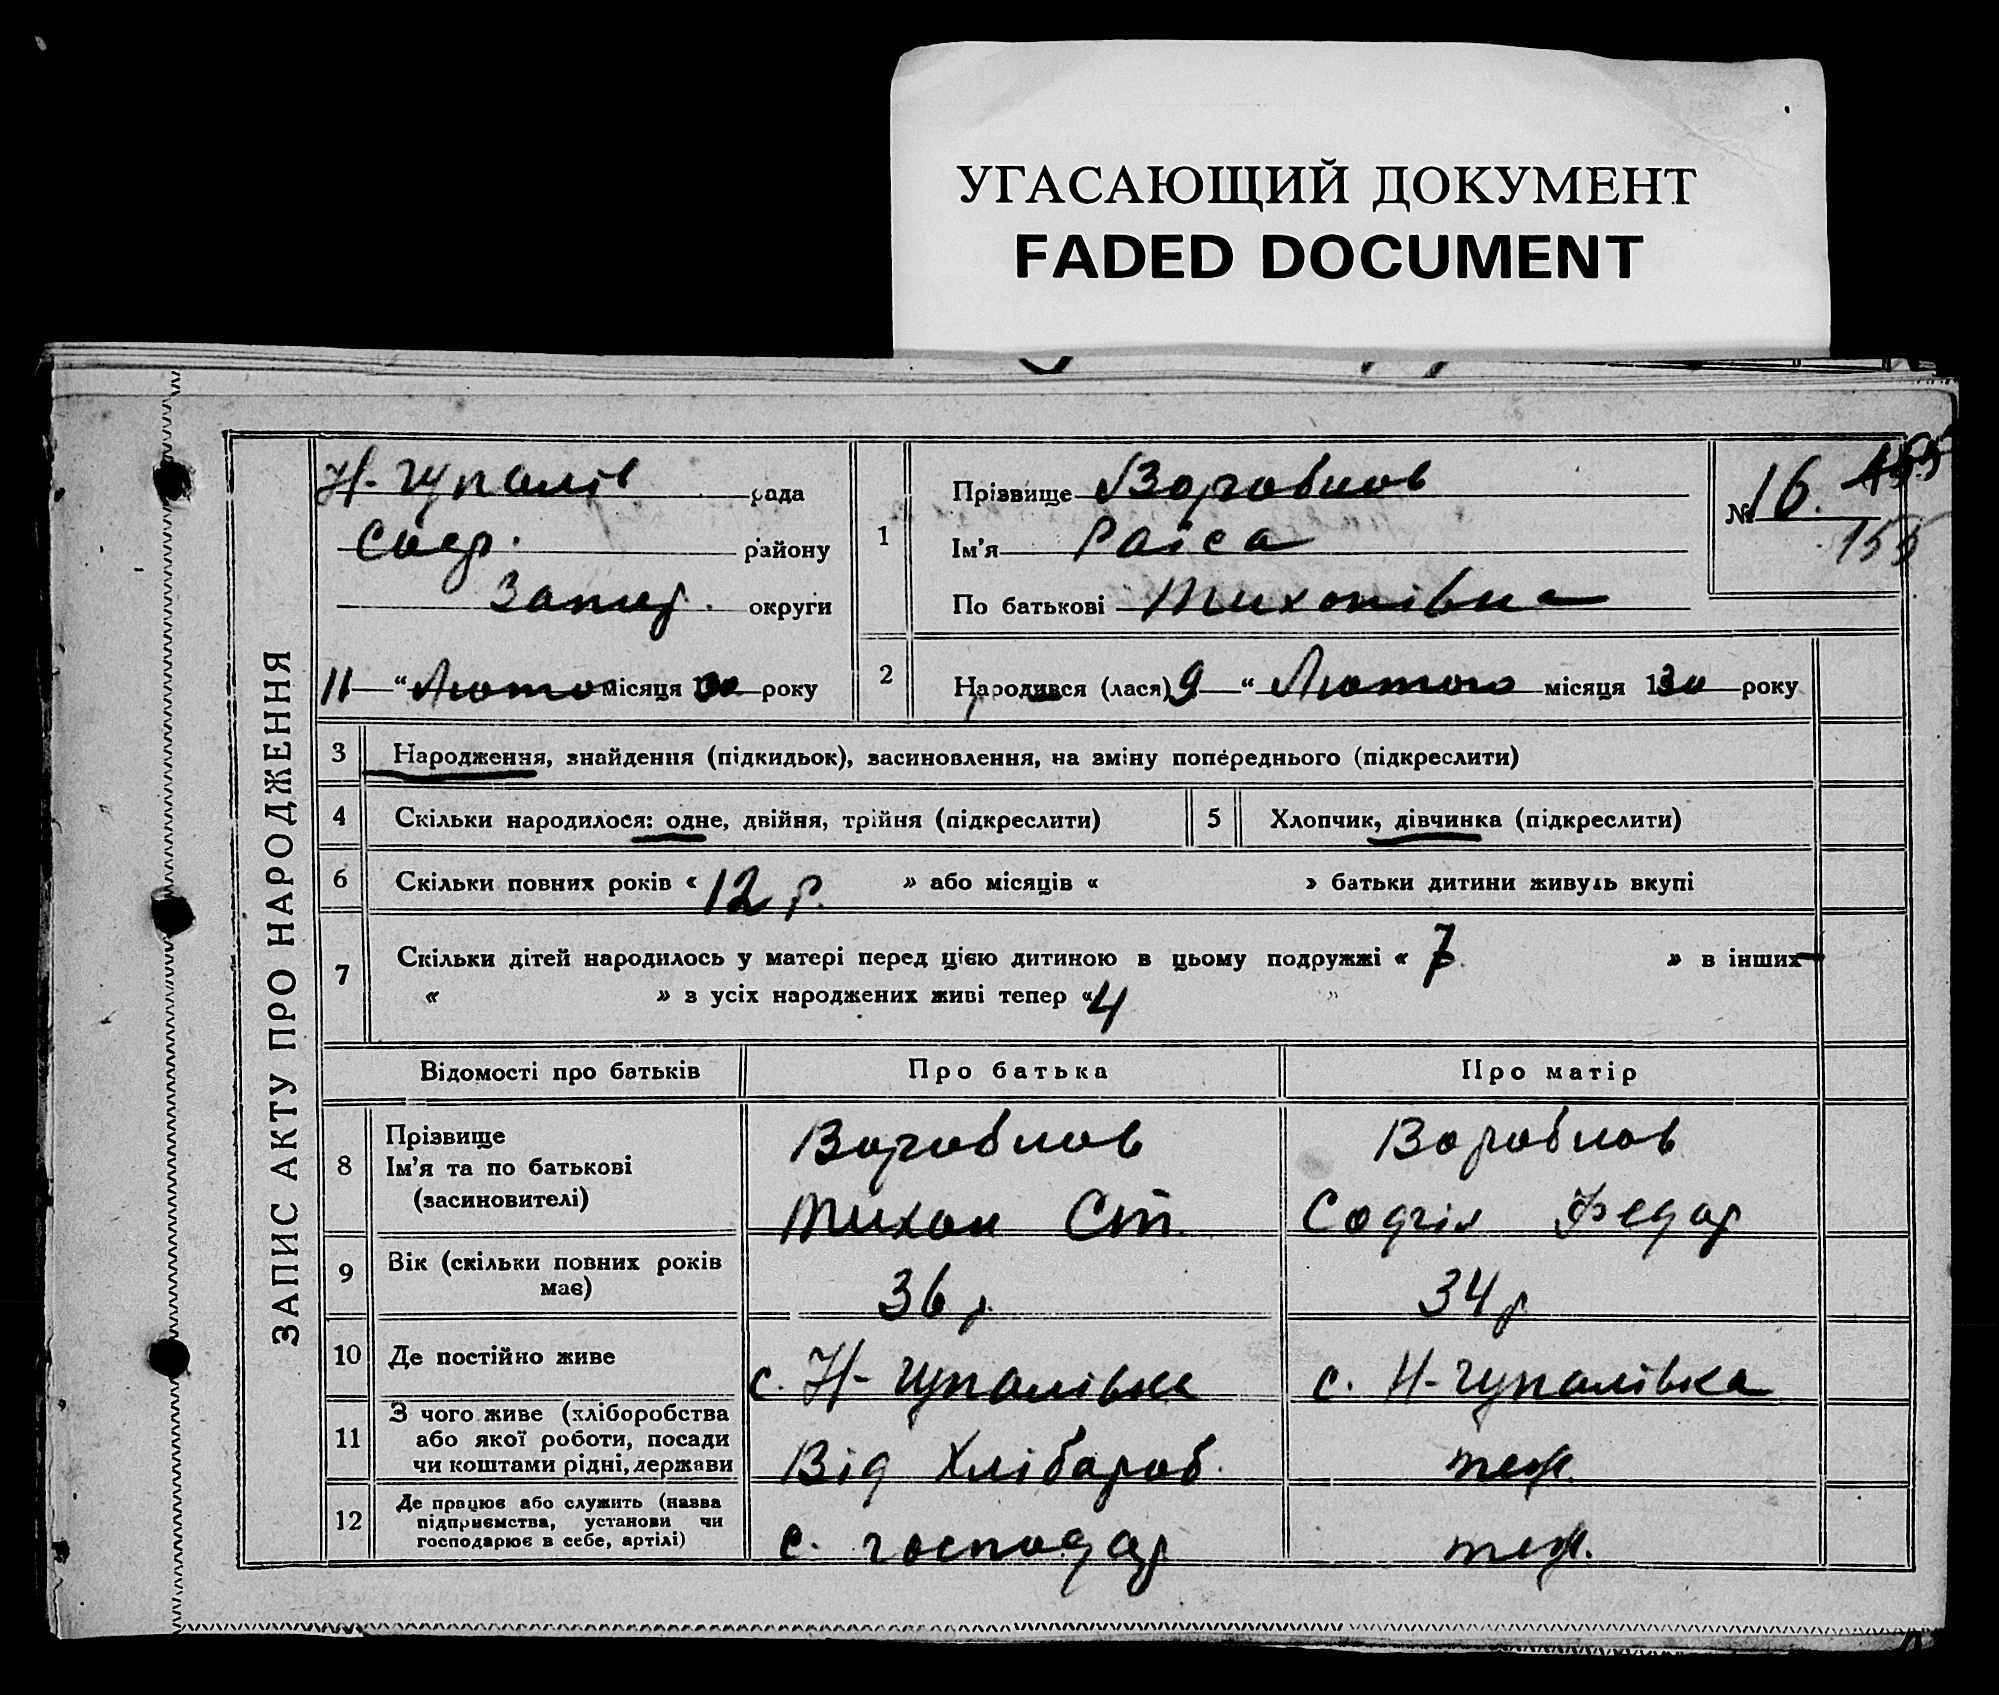 УГАСАЮЩИЙ ДОКУМЕНТ
FADED DOCUMENT
ЗАПИС АКТУ ПРО НАРОДЖЕННЯ
Н-Гупалів рада
Соф. району
Запор. округи
11 “ Лютого місяця 30 року
1
Прізвище Воробйов
Ім’я Раїса
По батькові Тихонівна
№ 16.
155
2
Народився (лася) 9 “ Лютого місяця 130 року
3 Народження, знайдення (підкидьок), засиновлення, на зміну попереднього (підкреслити)
4 Скільки народилося: одне, двійня, трійня (підкреслити)
5 Хлопчик, дівчинка (підкреслити)
6 Скільки повних років « 12 р. » або місяців « » батьки дитини живуть вкупі
7 Скільки дітей народилось у матері перед цією дитиною в цьому подружжі « 7 » в інших
« » з усіх народжених живі тепер « 4 "
Відомості про батьків Про батька Про матір
8 Прізвище
Ім’я та по батькові
(засиновителі)
Воробйов
Тихон Ст.
Воробйов
Софія Федор
9 Вік (скільки повних років
має)
36 р.
34 р
10 Де постійно живе с. Н-Гупалівка с. Н-Гупалівка
11 З чого живе (хліборобства
або якої роботи, посади
чи коштами рідні, держави
Від Хлібороб.
теж.
12 Де працює або служить (назва
підприємства, установи чи
господарює в себе, артілі)
с. господар
теж.